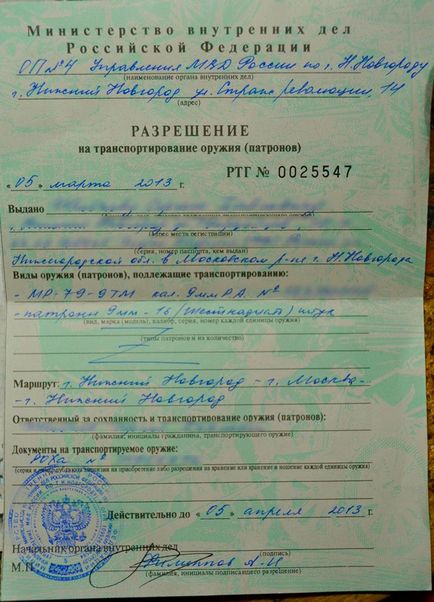 Министерство внутренних дел
Российской Федерации
ОП №4 Управления МВД России по г. Н.Новгороду
(наименование органа внутренних дел)
г. Нижний Новгород ул. Страж революции, 14
(адрес)
РАЗРЕШЕНИЕ
на транспортирование оружия (патронов)
РТГ № 0025547
«05» марта 2013 г.
Выдано
адрес места регистрации)
(серия, номер паспорта, кем выдан)
Нижегородской обл. в Московском р-не г. Н.Новгорода
Виды оружия (патронов), подлежащие транспортированию:
- МР-79-9ТМ кал. 9мм Р.А. №
- патроны 9мм - 16 (шестнадцать) штук
(вид, марка (модель), калибр, серия, номер каждой единицы оружия)
(типы патронов и их количество)
Маршрут: г. Нижний Новгород - г. Москва -
- г. Нижний Новгород
Ответственный за сохранность и транспортирование оружия (патронов):
(фамилия, инициалы гражданина, транспортирующего оружие)
Документы на транспортируемое оружие:
РОХа №
на приобретение либо разрешения на хранение или хранение и ношение каждой единицы оружия)
Действительно до «05» апреля 2013 г.
Начальник органа внутренних дел
(подпись)
М.П.
Филиппов А.И
(фамилия, инициалы подписавшего разрешение)